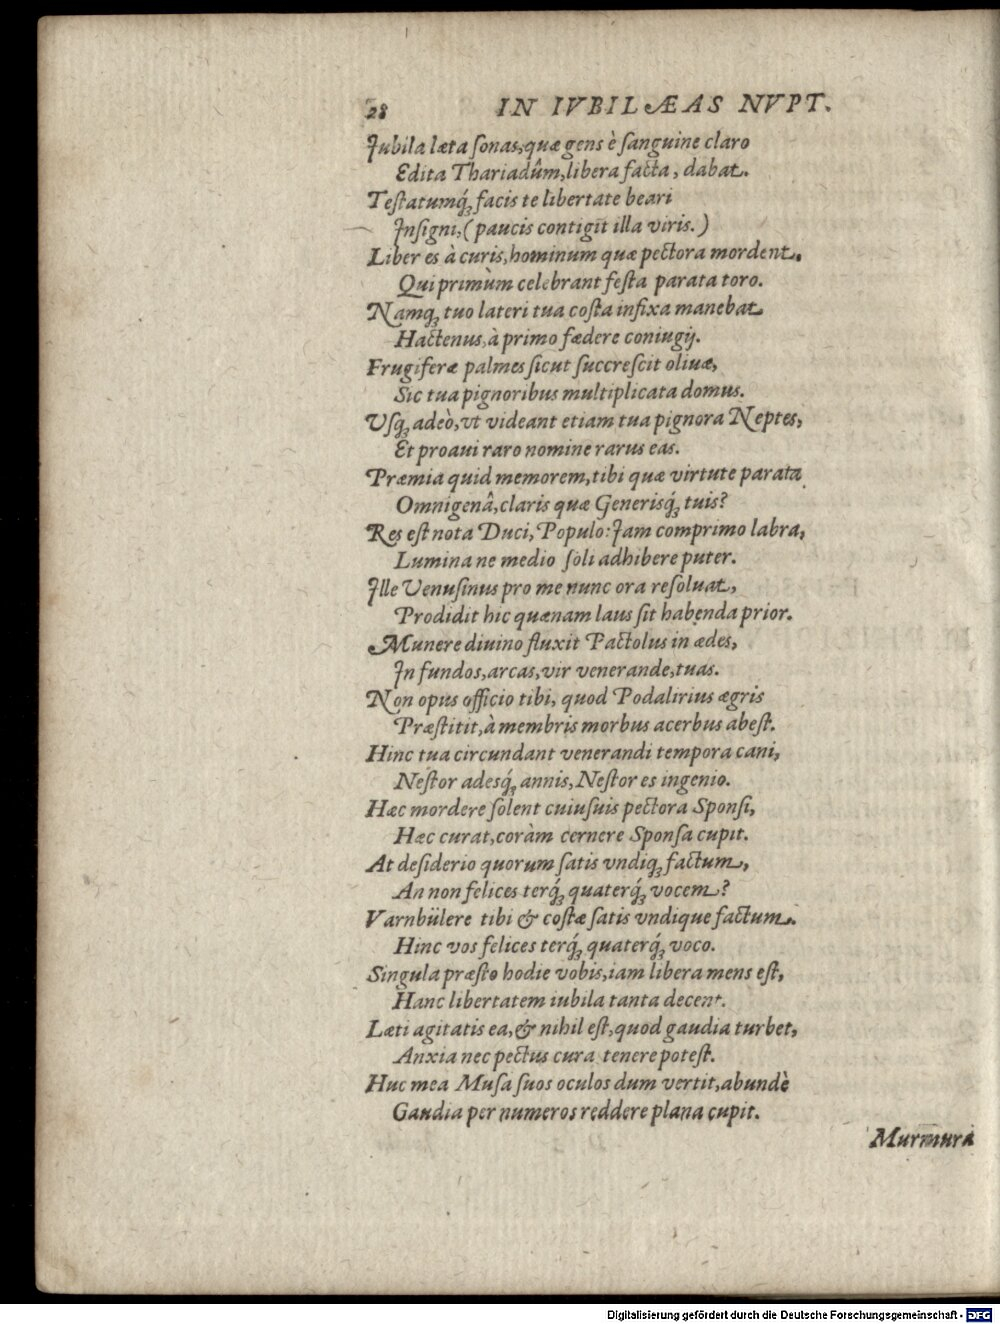 28 IN IVBILÆAS NVPT.
Jubila læta ſonas, quæ gens è ſanguine claro
Edita Thariadûm, libera facta, dabat.
Teſtatumq́ꝫ facis te libertate beari
Inſigni, (paucis contigit illa viris.)
Liber es à curis, hominum quæ pectora mordent,
Qui primùm celebrant feſta parata toro.
Namqꝫ tuo lateri tua coſta infixa manebat
Hactenus, à primo fædere coniugij.
Frugiferæ palmes ſicut ſuccreſcit oliuæ,
Sic tua pignoribus multiplicata domus.
Uſqꝫ adeò, vt videant etiam tua pignora Neptes,
Et proaui raro nomine rarus eas.
Præmia quid memorem, tibi quæ virtute parata
Omnigenâ, claris quæ Generisq́ꝫ tuis?
Res eſt nota Duci, Populo: Jam comprimo labra,
Lumina ne medio ſoli adhibere puter.
Ille Venuſinus pro me nunc ora reſoluat,
Prodidit hic quænam laus ſit habenda prior.
Munere diuino fluxit Pactolus in ædes,
In fundos, arcas, vir venerande, tuas.
Non opus officio tibi, quod Podalirius ægris
Præſtitit, à membris morbus acerbus abeſt.
Hinc tua circundant venerandi tempora cani,
Neſtor adesq́ꝫ annis, Neſtor es ingenio.
Hæc mordere ſolent cuiuſuis pectora Sponſi,
Hæc curat, coràm cernere Sponſa cupit.
At deſiderio quorum ſatis vndiqꝫ factum,
An non felices terq́ꝫ quaterq́ꝫ vocem?
Varnbülere tibi & coſtæ ſatis vndique factum.
Hinc vos felices terq́ꝫ quaterq́ꝫ voco.
Singula præſto hodie vobis, iam libera mens eſt,
Hanc libertatem iubila tanta decent.
Læti agitatis ea, & nihil eſt, quod gaudia turbet,
Anxia nec pectus cura tenere poteſt.
Huc mea Muſa ſuos oculos dum vertit, abundè
Gaudia per numeros reddere plana cupit.
Murmura
Digitalisierung gefördert durch die Deutsche Forschungsgemeinschaft - DFG